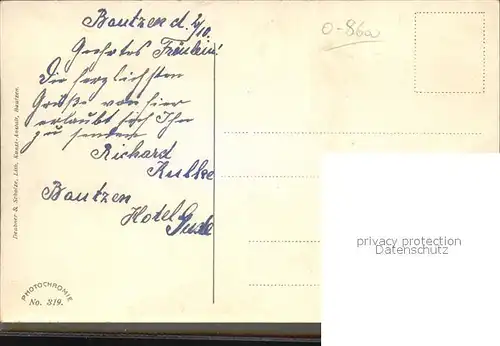 Bautzen d. 2/10.
Geehrtes Fräulein!
Die herzlichsten
Grüße von hier
erlaubt sich Ihn
zu senden
Richard
Bautzen
Hotel Gude
0-86a
Deubner & Schulze, Lith. Kunst-Anstalt, Bautzen.
PHOTOCHROMIE
No. 319.
privacy protection
Datenschutz